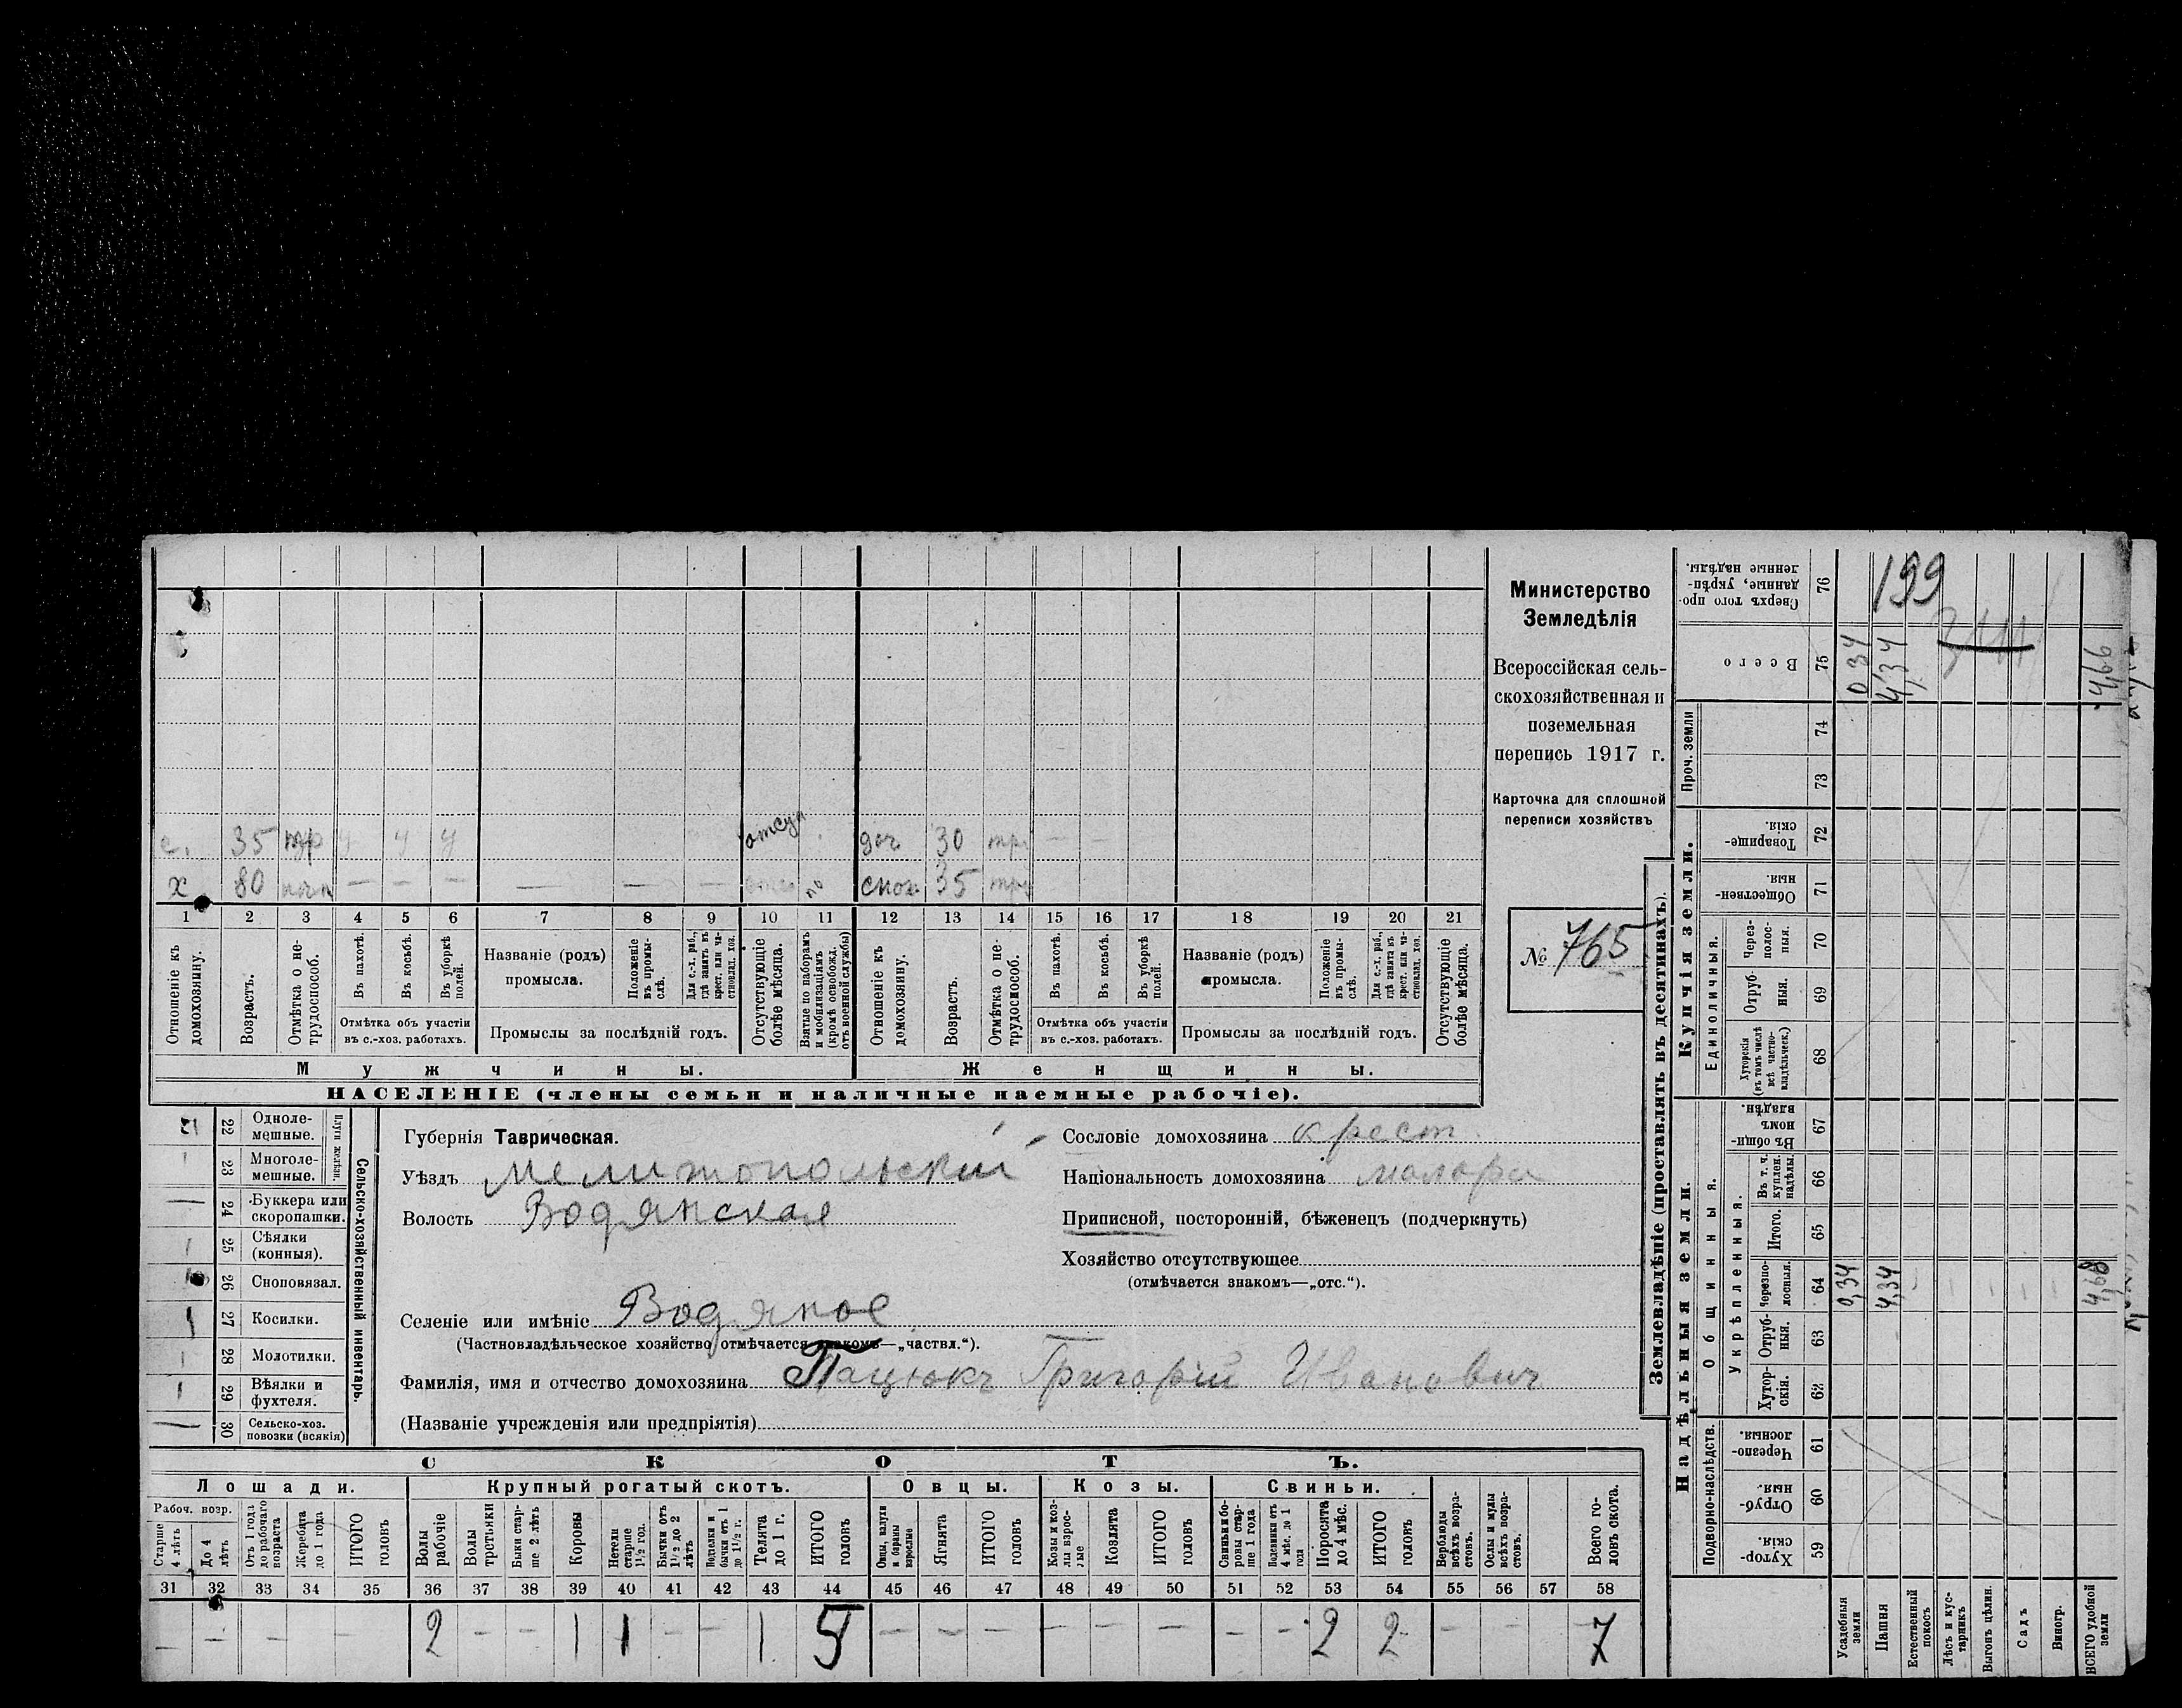 Министерство
Земледѣлія
Всероссійская сель-
скохозяйственная и
поземельная
перепись 1917 г.
Карточка для сплошной
переписи хозяйствъ
№ 765
с. 35 у у отсут доч 30 тр. — —
х 80 — — — — — — по 35
1 2 3 4 5 6 7 8 9 10 11 12 13 14 15 16 17 18 19 20 21
Отношеніе къ домохозяину.
Возрастъ.
Отмѣтка о не-трудоспособ.
Въ пахотѣ.
Въ косьбѣ.
Въ уборкѣ полей.
Отмѣтка объ участіи въ с.-хоз. работахъ.
Названіе (родъ) промысла.
Положеніе въ промыслѣ.
Для с.-х. раб., гдѣ занятъ въ крест. или частновлад. хоз.
Промыслы за послѣдній годъ.
Отсутствующіе болѣе мѣсяца.
Взятые по наборамъ и мобилизаціямъ (кромѣ освобожд. отъ военной службы)
Отношеніе къ домохозяину.
Возрастъ.
Отмѣтка о не-трудоспособ.
Въ пахотѣ.
Въ косьбѣ.
Въ уборкѣ полей.
Отмѣтка объ участіи въ с.-хоз. работахъ.
Названіе (родъ) промысла.
Положеніе въ промыслѣ.
Для с.-х. раб., гдѣ занята въ крест. или частновлад. хоз.
Промыслы за послѣдній годъ.
Отсутствующіе болѣе мѣсяца.
Мужчины. Женщины.
НАСЕЛЕНІЕ (члены семьи и наличные наемные рабочіе).
Сельско-хозяйственный инвентарь.
Плуги желѣзн.
22 Одноле-мешные.
23 Многоле-мешные.
— 24 Буккера или скоропашки.
25 Сѣялки (конныя).
26 Сноповязал.
1 27 Косилки.
28 Молотилки.
1 29 Вѣялки и фухтеля.
— 30 Сельско-хоз. повозки (всякія)
Губернія Таврическая.
Уѣздъ Мелитопольскій
Волость Водянская
Селеніе или имѣніе Водяное
(Частновладѣльческое хозяйство отмѣчается знакомъ—„частвл.“).
Фамилія, имя и отчество домохозяина Пацюкъ Григорій Иванович
(Названіе учрежденія или предпріятія)
Сословіе домохозяина крест.
Національность домохозяина малора
Приписной, посторонній, бѣженецъ (подчеркнуть)
Хозяйство отсутствующее
(отмѣчается знакомъ—„отс.“).
СКОТЪ.
Лошади. Крупный рогатый скотъ. Овцы. Козы. Свиньи.
Рабоч. возр.
Старше 4 лѣтъ
До 4 лѣтъ
Отъ 1 года до рабочаго возраста
Жеребята до 1 года
ИТОГО головъ
Волы рабочіе
Волы третьяки
Быки старше 2 лѣтъ
Коровы
Нетели старше 1½ год.
Бычки отъ 1½ до 2 лѣтъ
Подтелки и бычки отъ 1 до 1½ г.
Телята до 1 г.
ИТОГО головъ
Овцы, валухи и бараны взрослые
Ягнята
ИТОГО головъ
Козы и козлы взрослые
Козлята
ИТОГО головъ
Свиньи и боровы старше 1 года
Подсвинки отъ 4 мѣс. до 1 года
Поросята до 4 мѣс.
ИТОГО головъ
Верблюды всѣхъ возрастовъ.
Ослы и мулы всѣхъ возрастовъ.
Всего головъ скота.
31 32 33 34 35 36 37 38 39 40 41 42 43 44 45 46 47 48 49 50 51 52 53 54 55 56 57 58
— — — — 2 — — 1 1 — — 1 5 — — — — — — — — 2 2 — — 7
Землевладѣніе (проставлять въ десятинахъ).
Надѣльныя земли.
Подворно-наслѣдств.
Хутор-скія. 59
Отруб-ныя. 60
Черезпо-лосныя. 61
Общинныя.
Укрѣпленныя.
Хутор-скія. 62
Отруб-ныя. 63
Черезпо-лосныя. 64 0,34 4,34 4,68
Итого. 65
Въ т. ч. куплен. надѣлы. 66
Въ общин-номъ владѣн. 67
Купчія земли.
Единоличныя.
Хуторскія (въ томъ числѣ всѣ частно-владѣльческ.) 68
Отруб-ныя. 69
Через-полос-ныя. 70
Обществен-ныя 71
Товарище-скія. 72
Проч. земли
73
74
Всего 75 0 34 4,34 4,66
Сверхъ того про-данные, укрѣп-ленные надѣлы. 76
199
Усадебныя земли
Пашня
Естественный покосъ
Лѣсъ и кус-тарникъ
Выгонъ цѣлин.
Садъ
Виногр.
ВСЕГО удобной земли